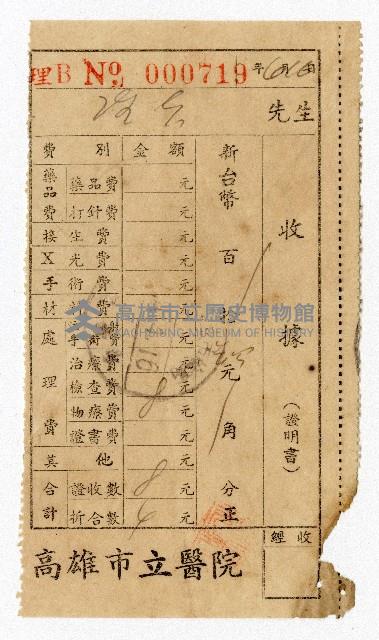 理B No 000719 年6月6日
先生
收據（證明書）
新台幣 百 拾 元 角 分正
費別 金額
藥品費 藥品費 元
打針費 元
接生費 元
X光費 元
手術費 元
材料費 元
處理費 手術費 元
治療費 元
檢查費 8 元
物療費 元
證書費 元
其他 元
合計 證收數 8 元
折合數 4 元
經收
高雄市立醫院
高雄市立歷史博物館
KAOHSIUNG MUSEUM OF HISTORY